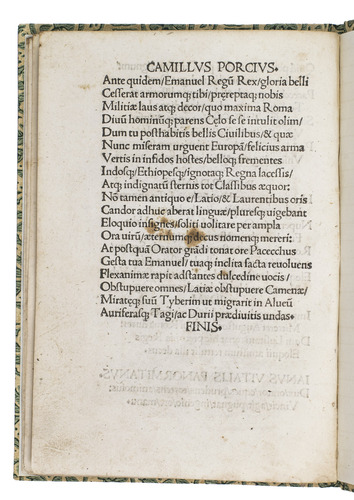 CAMILLVS PORCIVS.
Ante quidem/Emanuel Regũ Rex/gloria belli
Cesserat armorumq; tibi/pręreptaq; nobis
Militiæ laus atq; decor/quo maxima Roma
Diuũ hominũq; parens Cęlo se se intulit olim/
Dum tu posthabitis bellis Ciuilibus/& quæ
Nunc miseram urguent Europã/felicius arma
Vertis in infidos hostes/belloq; frementes
Indosq;/Ethiopesq;/ignotaq; Regna lacessis/
Atq; indignatũ sternis tot Classibus æquor:
Nõ tamen antiquo e/Latio/& Laurentibus oris
Candor adhuc aberat linguæ/pluresq; uigebant
Eloquio insignes/soliti uolitare per ampla
Ora uirũ/æternumq; decus nomenq; mereri:
At postquã Orator grãdi tonat ore Pacecchus
Gesta tua Emanuel/tuaq; inclita facta reuoluens
Flexanimæ rapit adstantes dulcedine uocis/
Obstupuere omnes/Latiæ obstupuere Camenæ/
Mirateq; suũ Tyberim ut migrarit in Alueũ
Auriferasq; Tagi/ac Durii prædiuitis undas.
FINIS.